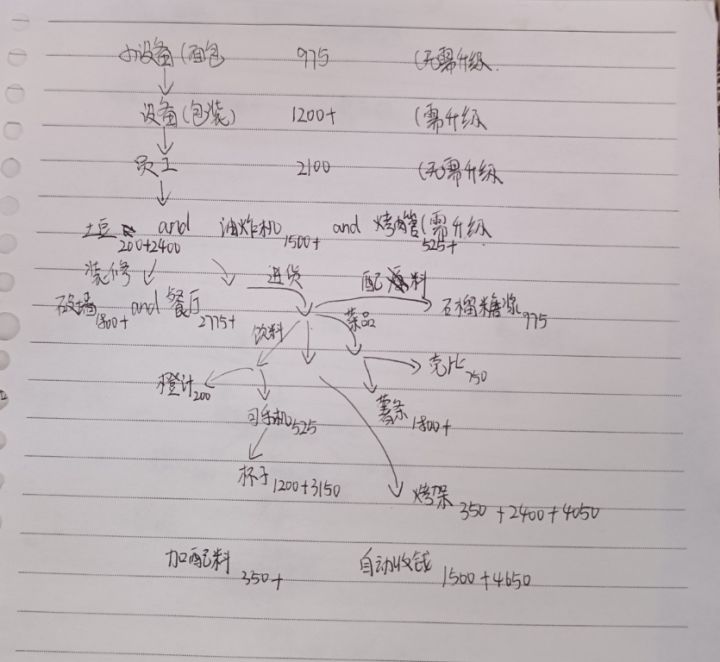 小设备(面包 975 (无需升级
设备(包装) 1200+ (需升级
员工 2100 (无需升级
土豆 200+2400 and 油炸机 1500+ and 烤肉管 525+ (需升级
装修 进货 配料
砍墙 1800+ and 餐厅 2775+ 石榴糖浆 975
饮料 菜品
橙汁 200 壳比 750
可乐机 525 薯条 1800+
杯子 1200+3150 烤架 350+2400+4050
加配料 350+ 自动收钱 1500+4650